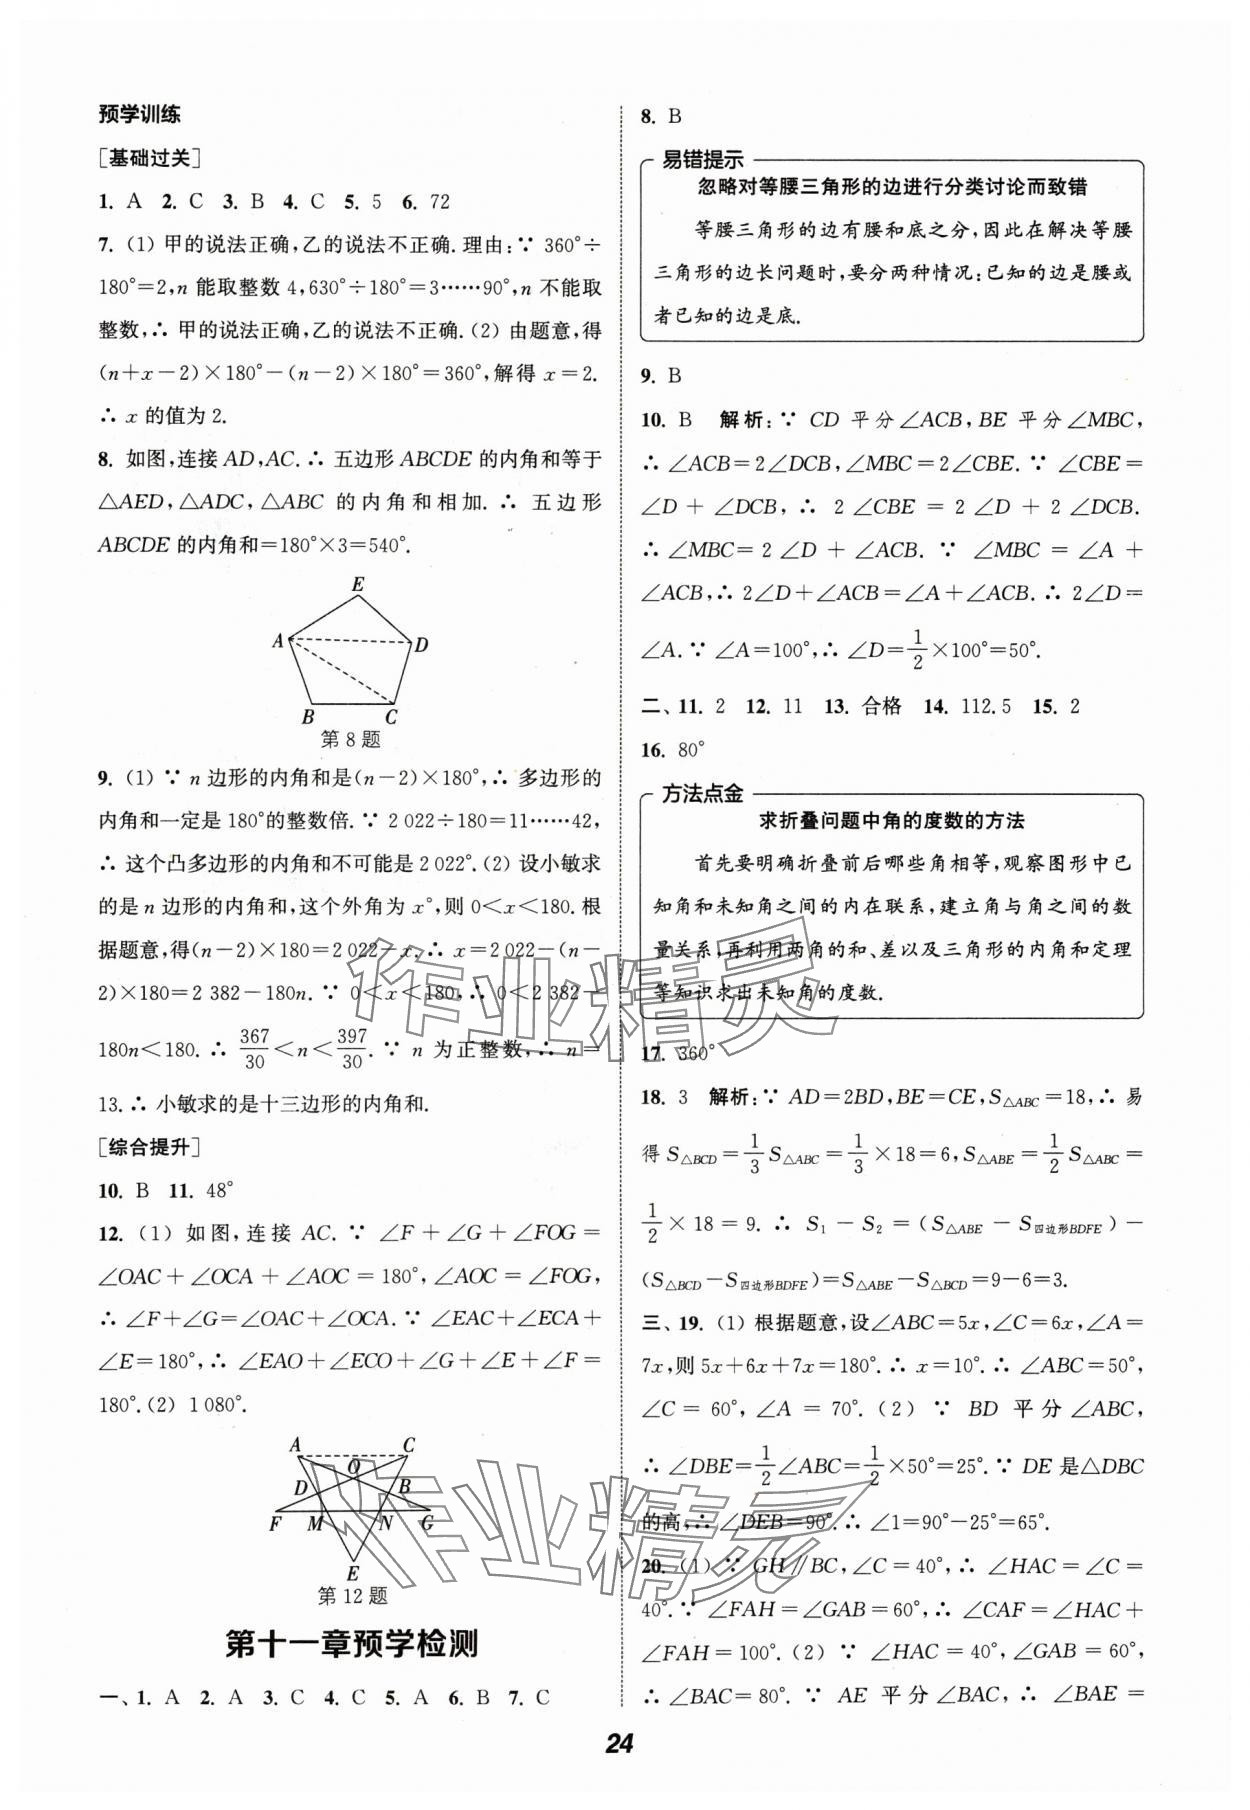 预学训练
[基础过关]
1. A 2. C 3. B 4. C 5. 5 6. 72
7. (1) 甲的说法正确,乙的说法不正确.理由:∵ 360°÷
180°=2,n 能取整数 4,630°÷180°=3……90°,n 不能取
整数,∴ 甲的说法正确,乙的说法不正确.(2) 由题意,得
(n+x-2)×180°-(n-2)×180°=360°,解得 x=2.
∴ x 的值为 2.
8. 如图,连接 AD,AC.∴ 五边形 ABCDE 的内角和等于
△AED,△ADC,△ABC 的内角和相加.∴ 五边形
ABCDE 的内角和=180°×3=540°.
E
A
D
B
C
第 8 题
9. (1) ∵ n 边形的内角和是(n-2)×180°,∴ 多边形的
内角和一定是 180°的整数倍.∵ 2 022÷180=11……42,
∴ 这个凸多边形的内角和不可能是 2 022°.(2) 设小敏求
的是 n 边形的内角和,这个外角为 x°,则 0<x<180.根
据题意,得(n-2)×180=2 022-x.∴ x=2 022-(n-
2)×180=2 382-180n.∵ 0<x<180,∴ 0<2 382-
180n<180.∴ 367/30<n<397/30.∵ n 为正整数,∴ n=
13.∴ 小敏求的是十三边形的内角和.
[综合提升]
10. B 11. 48°
12. (1) 如图,连接 AC.∵ ∠F+∠G+∠FOG=
∠OAC+∠OCA+∠AOC=180°,∠AOC=∠FOG,
∴ ∠F+∠G=∠OAC+∠OCA.∵ ∠EAC+∠ECA+
∠E=180°,∴ ∠EAO+∠ECO+∠G+∠E+∠F=
180°.(2) 1 080°.
A
C
O
D
B
F
M
N
G
E
第 12 题
第十一章预学检测
一、1. A 2. A 3. C 4. C 5. A 6. B 7. C
8. B
易错提示
忽略对等腰三角形的边进行分类讨论而致错
等腰三角形的边有腰和底之分,因此在解决等腰
三角形的边长问题时,要分两种情况:已知的边是腰或
者已知的边是底.
9. B
10. B 解析:∵ CD 平分∠ACB,BE 平分∠MBC,
∴ ∠ACB=2∠DCB,∠MBC=2∠CBE.∵ ∠CBE=
∠D+∠DCB,∴ 2∠CBE=2∠D+2∠DCB.
∴ ∠MBC=2∠D+∠ACB.∵ ∠MBC=∠A+
∠ACB,∴ 2∠D+∠ACB=∠A+∠ACB.∴ 2∠D=
∠A.∵ ∠A=100°,∴ ∠D=1/2×100°=50°.
二、11. 2 12. 11 13. 合格 14. 112.5 15. 2
16. 80°
方法点金
求折叠问题中角的度数的方法
首先要明确折叠前后哪些角相等,观察图形中已
知角和未知角之间的内在联系,建立角与角之间的数
量关系,再利用两角的和、差以及三角形的内角和定理
等知识求出未知角的度数.
17. 360°
18. 3 解析:∵ AD=2BD,BE=CE,S△ABC=18,∴ 易
得 S△BCD=1/3S△ABC=1/3×18=6,S△ABE=1/2S△ABC=
1/2×18=9.∴ S₁-S₂=(S△ABE-S四边形BDFE)-
(S△BCD-S四边形BDFE)=S△ABE-S△BCD=9-6=3.
三、19. (1) 根据题意,设∠ABC=5x,∠C=6x,∠A=
7x,则 5x+6x+7x=180°.∴ x=10°.∴ ∠ABC=50°,
∠C=60°,∠A=70°.(2) ∵ BD 平分∠ABC,
∴ ∠DBE=1/2∠ABC=1/2×50°=25°.∵ DE 是△DBC
的高,∴ ∠DEB=90°.∴ ∠1=90°-25°=65°.
20. (1) ∵ GH∥BC,∠C=40°,∴ ∠HAC=∠C=
40°.∵ ∠FAH=∠GAB=60°,∴ ∠CAF=∠HAC+
∠FAH=100°.(2) ∵ ∠HAC=40°,∠GAB=60°,
∴ ∠BAC=80°.∵ AE 平分∠BAC,∴ ∠BAE=
24
作业精灵
作业精灵